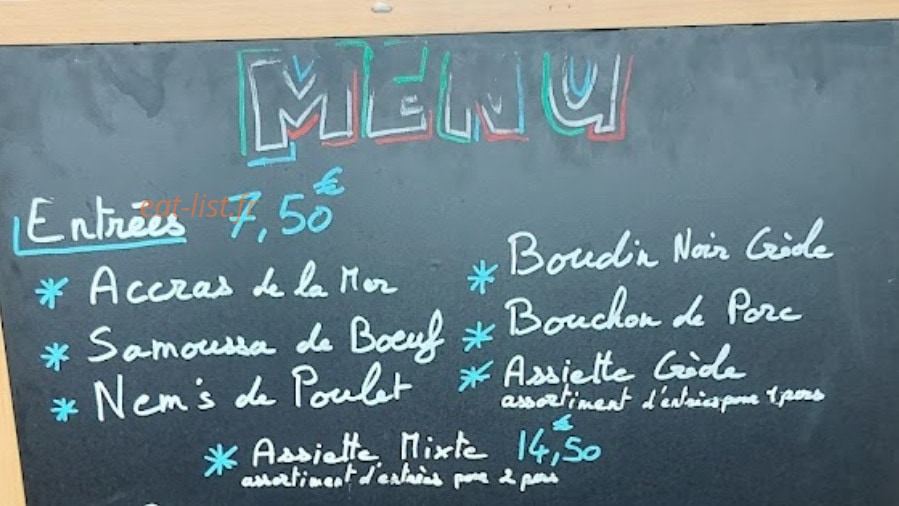 MENU
Entrées 7,50€
eat-list.fr
* Accras de la Mer
* Samoussa de Boeuf
* Nem's de Poulet
* Boudin Noir Créole
* Bouchon de Porc
* Assiette Créole
assortiment d'entrées pour 1 pers
* Assiette Mixte 14,50€
assortiment d'entrées pour 2 pers